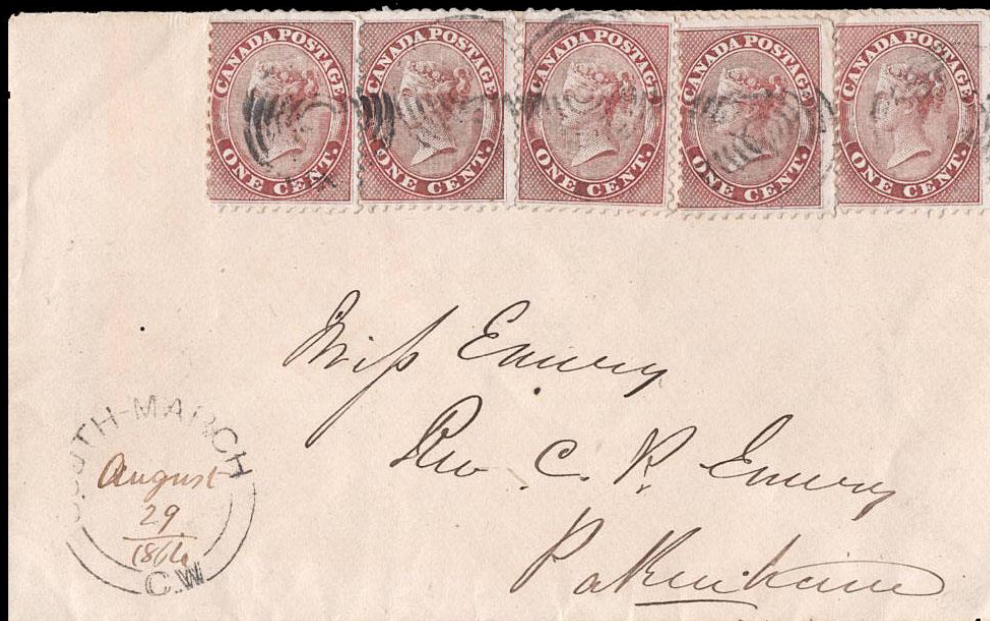 CANADA POSTAGE ONE CENT.
CANADA POSTAGE ONE CENT.
CANADA POSTAGE ONE CENT.
CANADA POSTAGE ONE CENT.
CANADA POSTAGE ONE CENT.
Miss Emery
Rev C. R. Emery
Pakenham
SOUTH-MARCH
August
29
1864
C.W